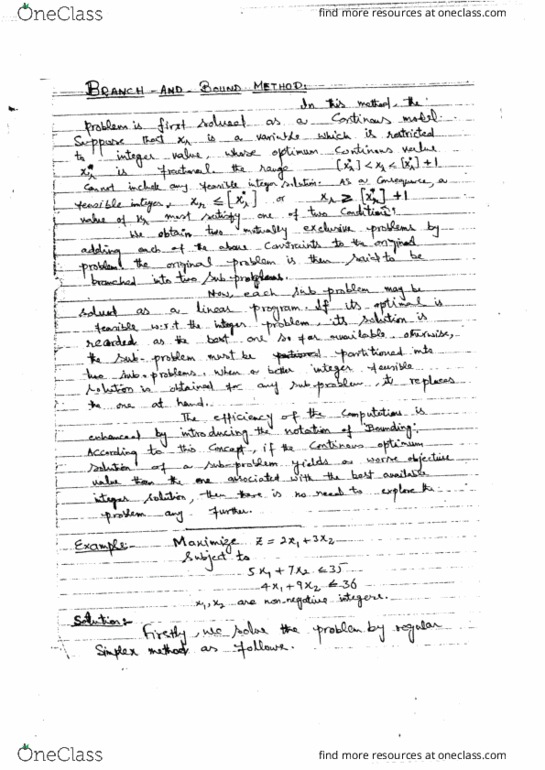 OneClass
find more resources at oneclass.com
BRANCH-AND-BOUND METHOD:
In this method, the
problem is first solved as a Continous model.
Suppose that xₖ is a variable which is restricted
to integer value, whose optimum Continous value
xₖ* is fractional. the range [xₖ*] < xₖ < [xₖ*] + 1
Cannot include any feasible integer solution. As a consequence, a
feasible integer, xₖ ≤ [xₖ*] or xₖ ≥ [xₖ*] + 1
value of xₖ must satisfy one of two Conditions:
We obtain two mutually exclusive problems by
adding each of the above Constraints to the original
problem. the original problem is then said to be
branched into two sub-problems.
Now, each sub problem may be
solved as a linear program. If its optimal is
feasible w.r.t the integer problem, its solution is
recorded as the best one so far available. otherwise,
the sub-problem must be partitioned into
two sub-problems. when a better integer feasible
solution is obtained for any sub problem, its replaces
the one at hand.
The efficiency of the Computation is
enhanced by introducing the notation of Bounding:
According to this Concept, if the Continous optimum
solution of a sub-problem yields a worse objective
value than the one associated with the best available
integer solution, then there is no need to explore the
problem any further.
Example:- Maximize z = 2x₁ + 3x₂
Subject to
5x₁ + 7x₂ ≤ 35
4x₁ + 9x₂ ≤ 36
x₁, x₂ are non-negative integers.
Solution:-
Firstly, we solve the problem by regular
Simplex method as follows.
OneClass
find more resources at oneclass.com